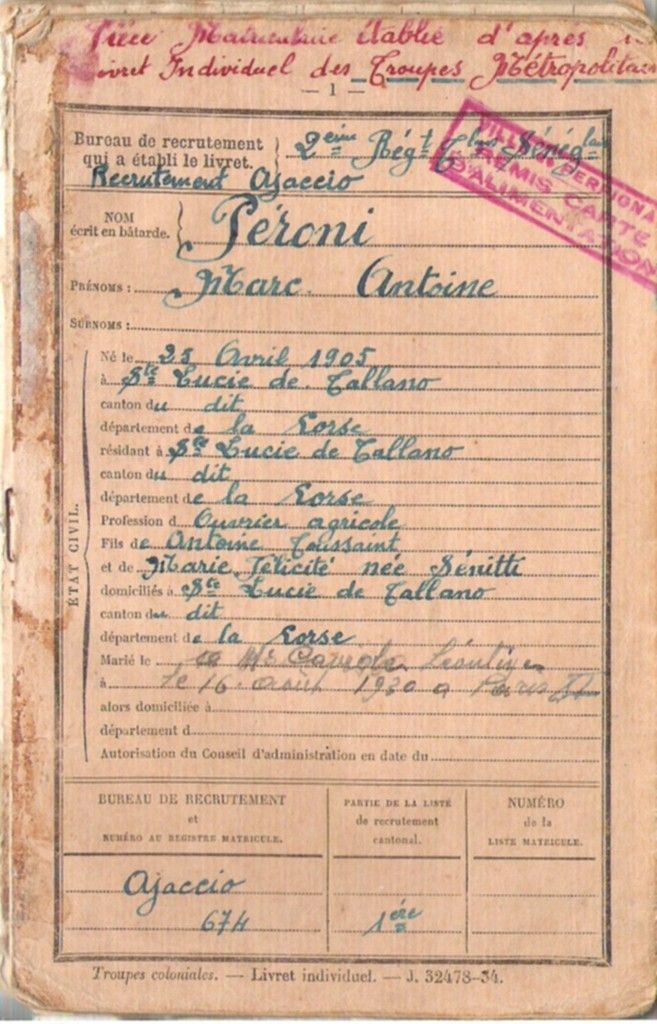 Pièce Matricule établie d'après le
Livret Individuel des Troupes Métropolitaines
— 1 —
Bureau de recrutement
qui a établi le livret.
2ème Régt Tleurs Sénéglais
Recrutement Ajaccio
VILLE PERPIGNA
REMIS CARTE
D'ALIMENTATION
NOM
écrit en bâtarde.
Péroni
PRÉNOMS : Marc Antoine
SURNOMS :
ÉTAT CIVIL.
Né le 25 Avril 1905
à Ste Lucie de Tallano
canton du dit
département de la Corse
résidant à Ste Lucie de Tallano
canton du dit
département de la Corse
Profession d Ouvrier agricole
Fils de Antoine Toussaint
et de Marie Félicité née Sénitti
domiciliés à Ste Lucie de Tallano
canton du dit
département de la Corse
Marié le a Mle
à le 16 août 1930 a Paris
alors domiciliée à
département d
Autorisation du Conseil d'administration en date du
BUREAU DE RECRUTEMENT
et
NUMÉRO AU REGISTRE MATRICULE.
PARTIE DE LA LISTE
de recrutement
cantonal.
NUMÉRO
de la
LISTE MATRICULE.
Ajaccio
674
1ère
Troupes coloniales. — Livret individuel. — J. 32478-34.